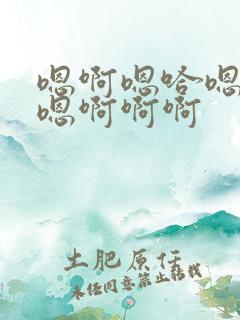 嗯啊嗯哈嗯
嗯啊啊啊
土肥原任
未经同意禁止转载